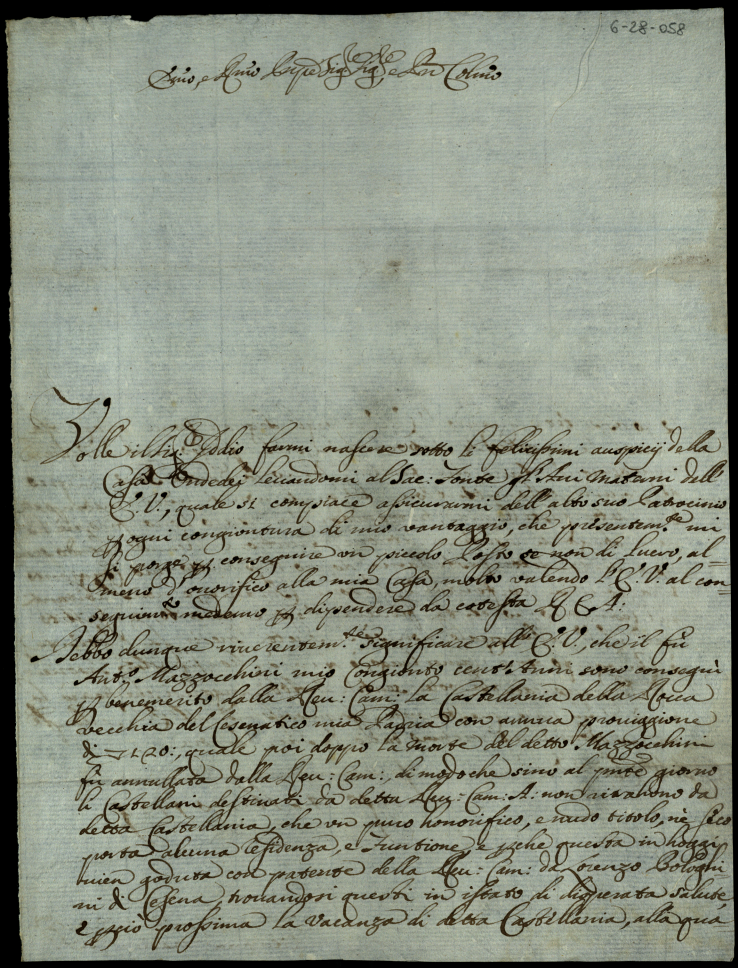 6-28-058
Emo, e Rmo Prpe Sig.r Sig.r, e Pne Colmo
Volle il Sig: Iddio farmi nascere sotto li felicissimi auspicij della
Casa Bndedei levandomi al Sac: Fonte gl'Avi Materni dell'
E: V:, quale si compiace assicurarmi dell'alto suo Patrocinio
p ogni congiontura di mio vantaggio, che presentem.te mi
si porge p conseguire un piccolo Posto se non di Lucro, al=
meno d'onorifico alla mia Casa, molto valendo l'E: V: al con=
seguim.to medemo p dipendere da cotesta R C A:
Debbo dunque riverentem.te significare all'E: V:, che il fù
Ant.o Mazzocchini mio Congionto cent'Anni sono conseguì
p benemerito dalla Reu: Cam: la Castellania della Rocca
vecchia del Cesenatico mia Patria con annua provigione
di 120:, quale poi doppo la morte del detto Mazzocchini
fù annullata dalla Reu: Cam:, di modo che sino al pnte giorno
li Castellani destinati da detta Reu: Cam: A: non ricavono da
detta Castellania, che un puro honorifico, e nudo titolo, ne seco
porta alcuna residenza, e Funtione, e pche questa in hoggi
vien goduta con patente della Reu: Cam: da Lorenzo Bologni=
ni di Cesena, trovandosi questi in istato di disperata salute,
e pciò prossima la vacanza di detta Castellania, alla qua